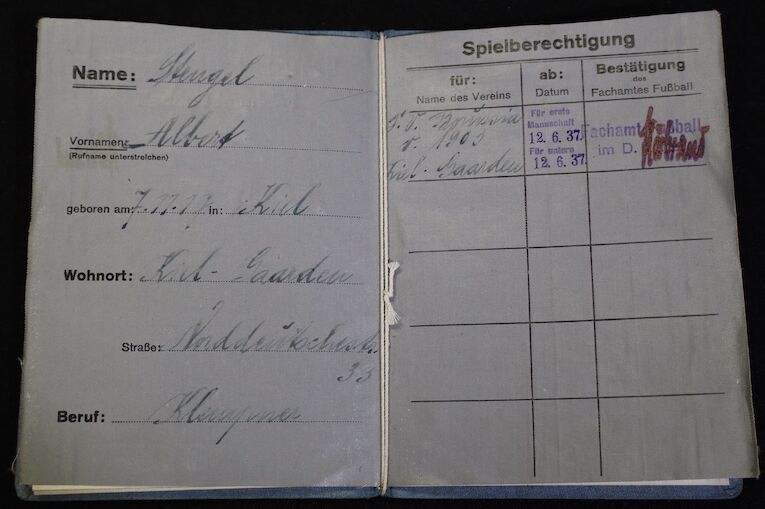 Name: Stengel
Vorname: Albert
(Rufname unterstreichen)
geboren am: 7.11.17. in: Kiel
Wohnort: Kiel-Gaarden
Straße: Norddeutschestr.
33
Beruf: Klempner
Spielberechtigung
für:
Name des Vereins
ab:
Datum
Bestätigung
des
Fachamtes Fußball
Borussia
v. 1905
Kiel-Gaarden
Für erste
Mannschaft
12. 6. 37.
Für untere
12. 6. 37.
Fachamt Fußball
im D.